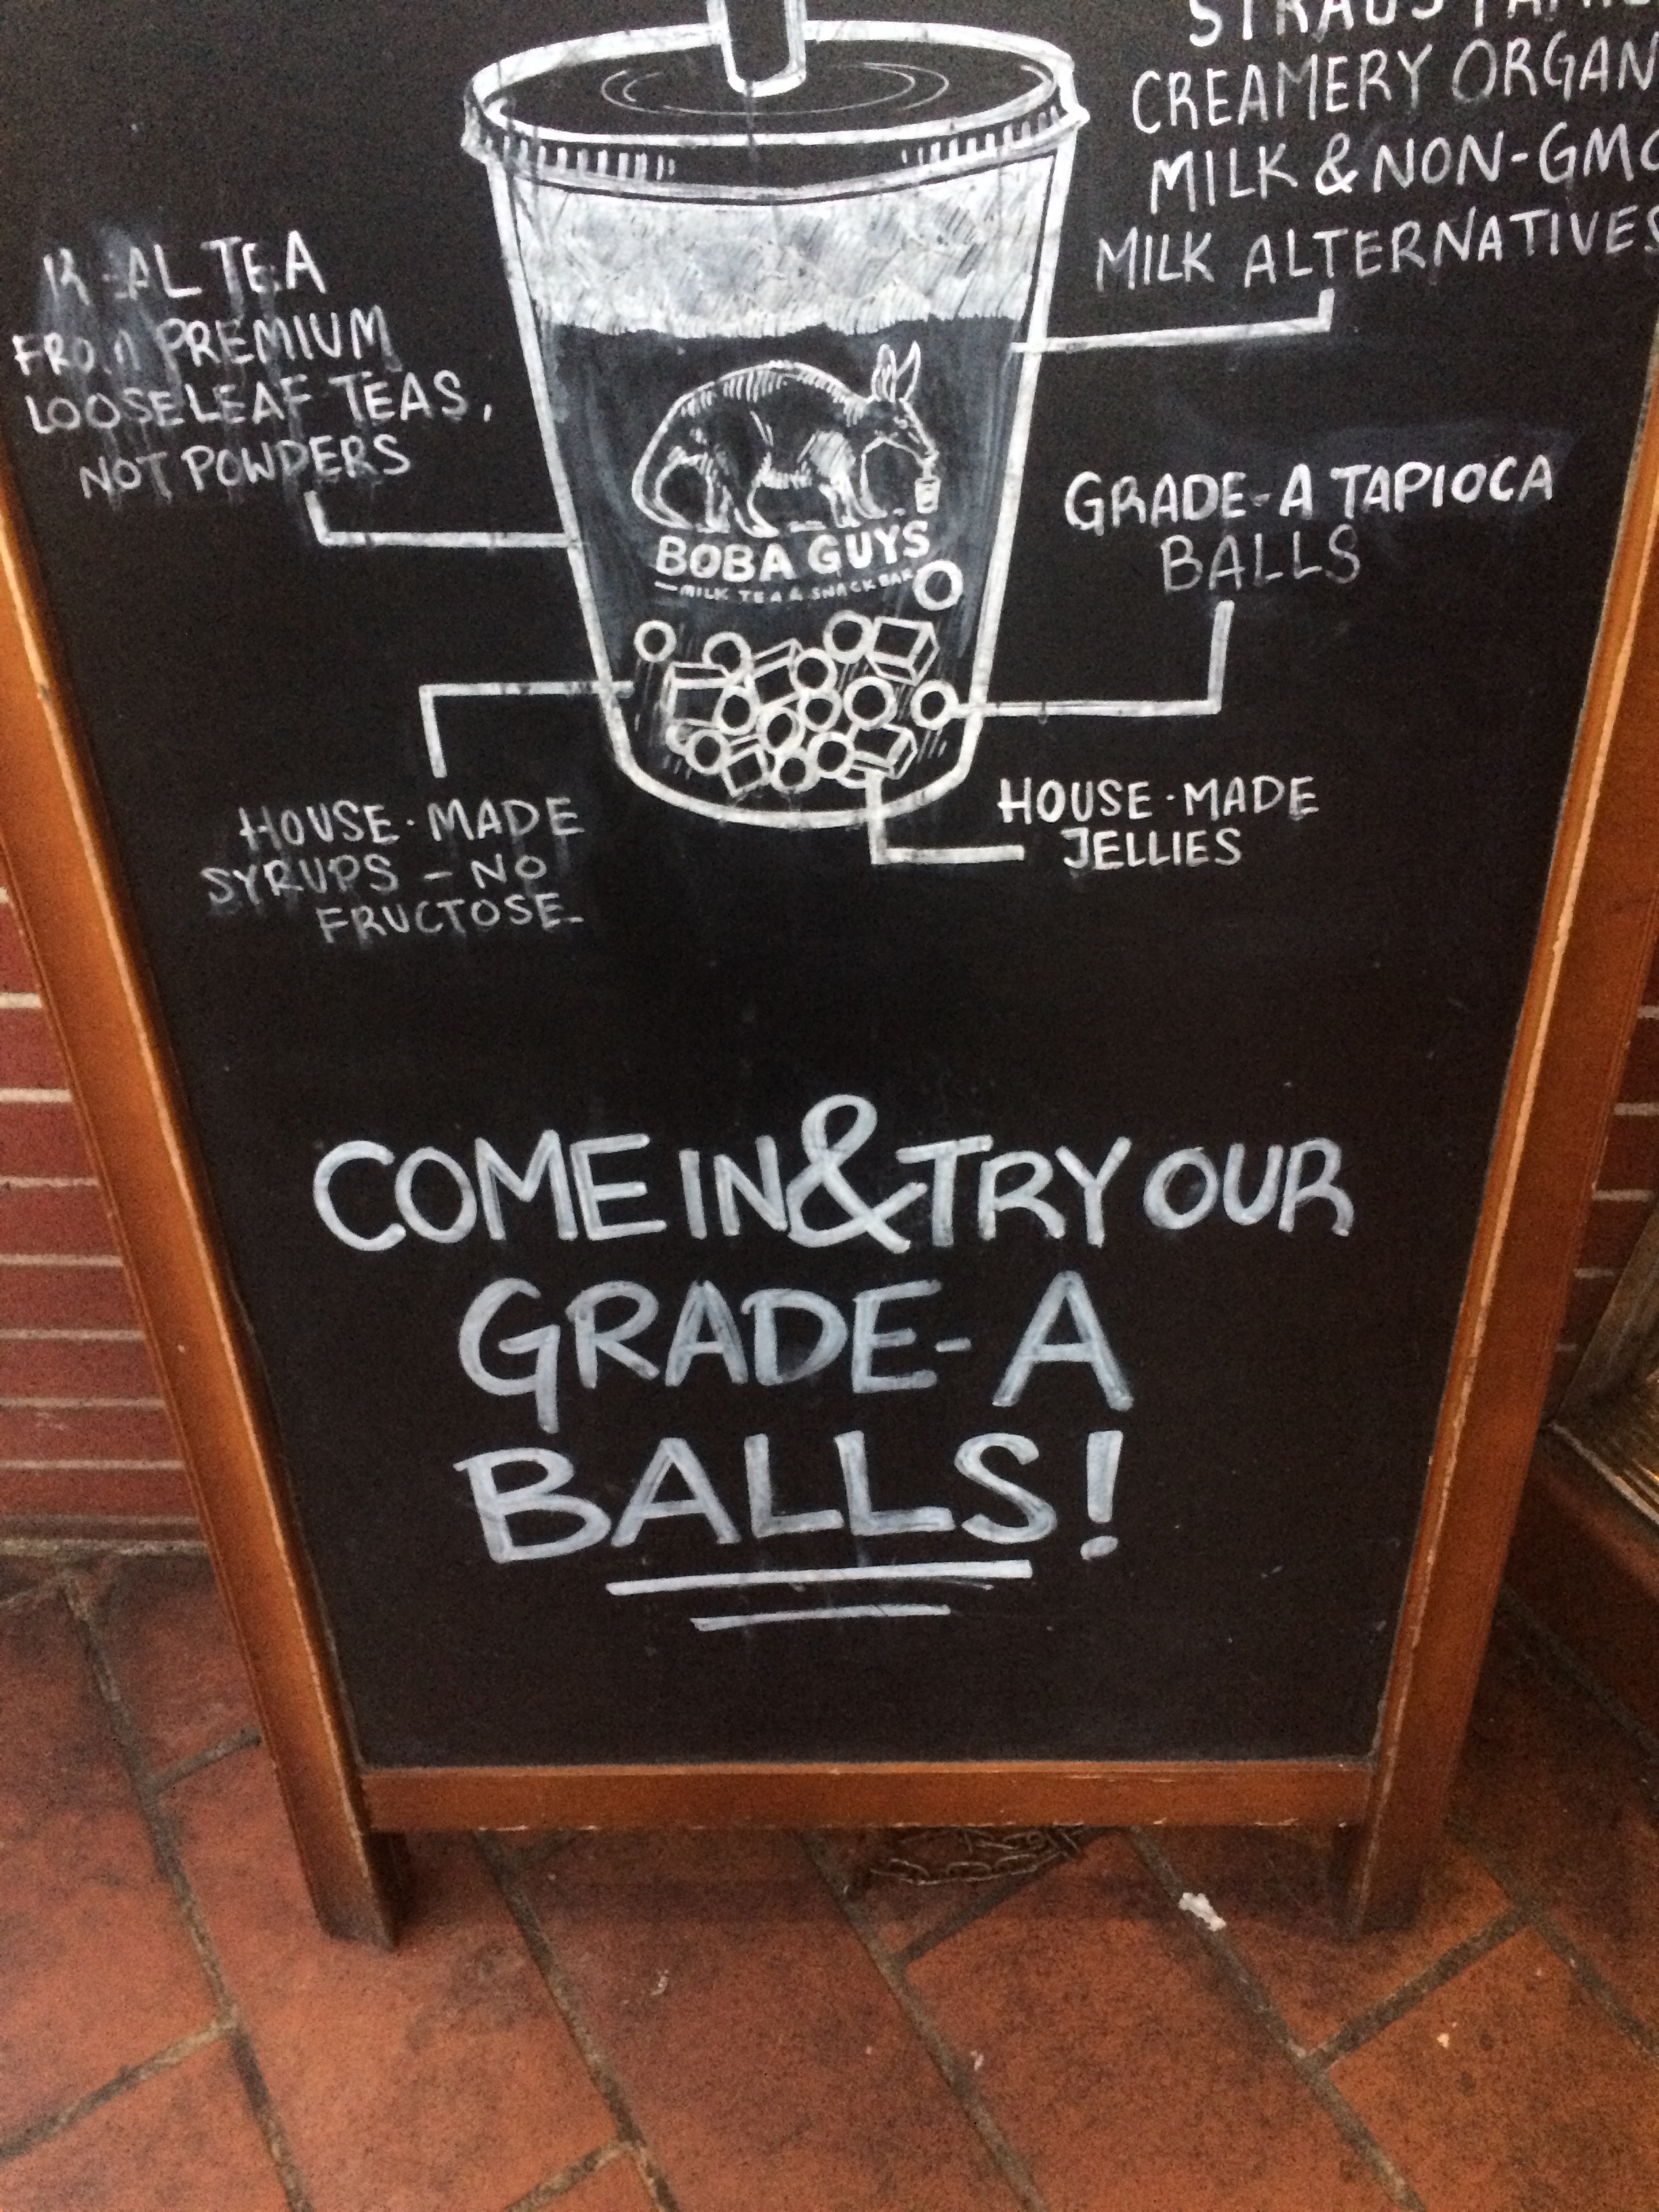 CREAMERY ORGAN
MILK & NON-GMO
MILK ALTERNATIVES
REAL TEA
FROM PREMIUM
LOOSELEAF TEAS,
NOT POWDERS
GRADE-A TAPIOCA
BALLS
BOBA GUYS
- MILK TEA & SNACK BAR
HOUSE-MADE
SYRUPS - NO
FRUCTOSE
HOUSE-MADE
JELLIES
COME IN & TRY OUR
GRADE-A
BALLS!